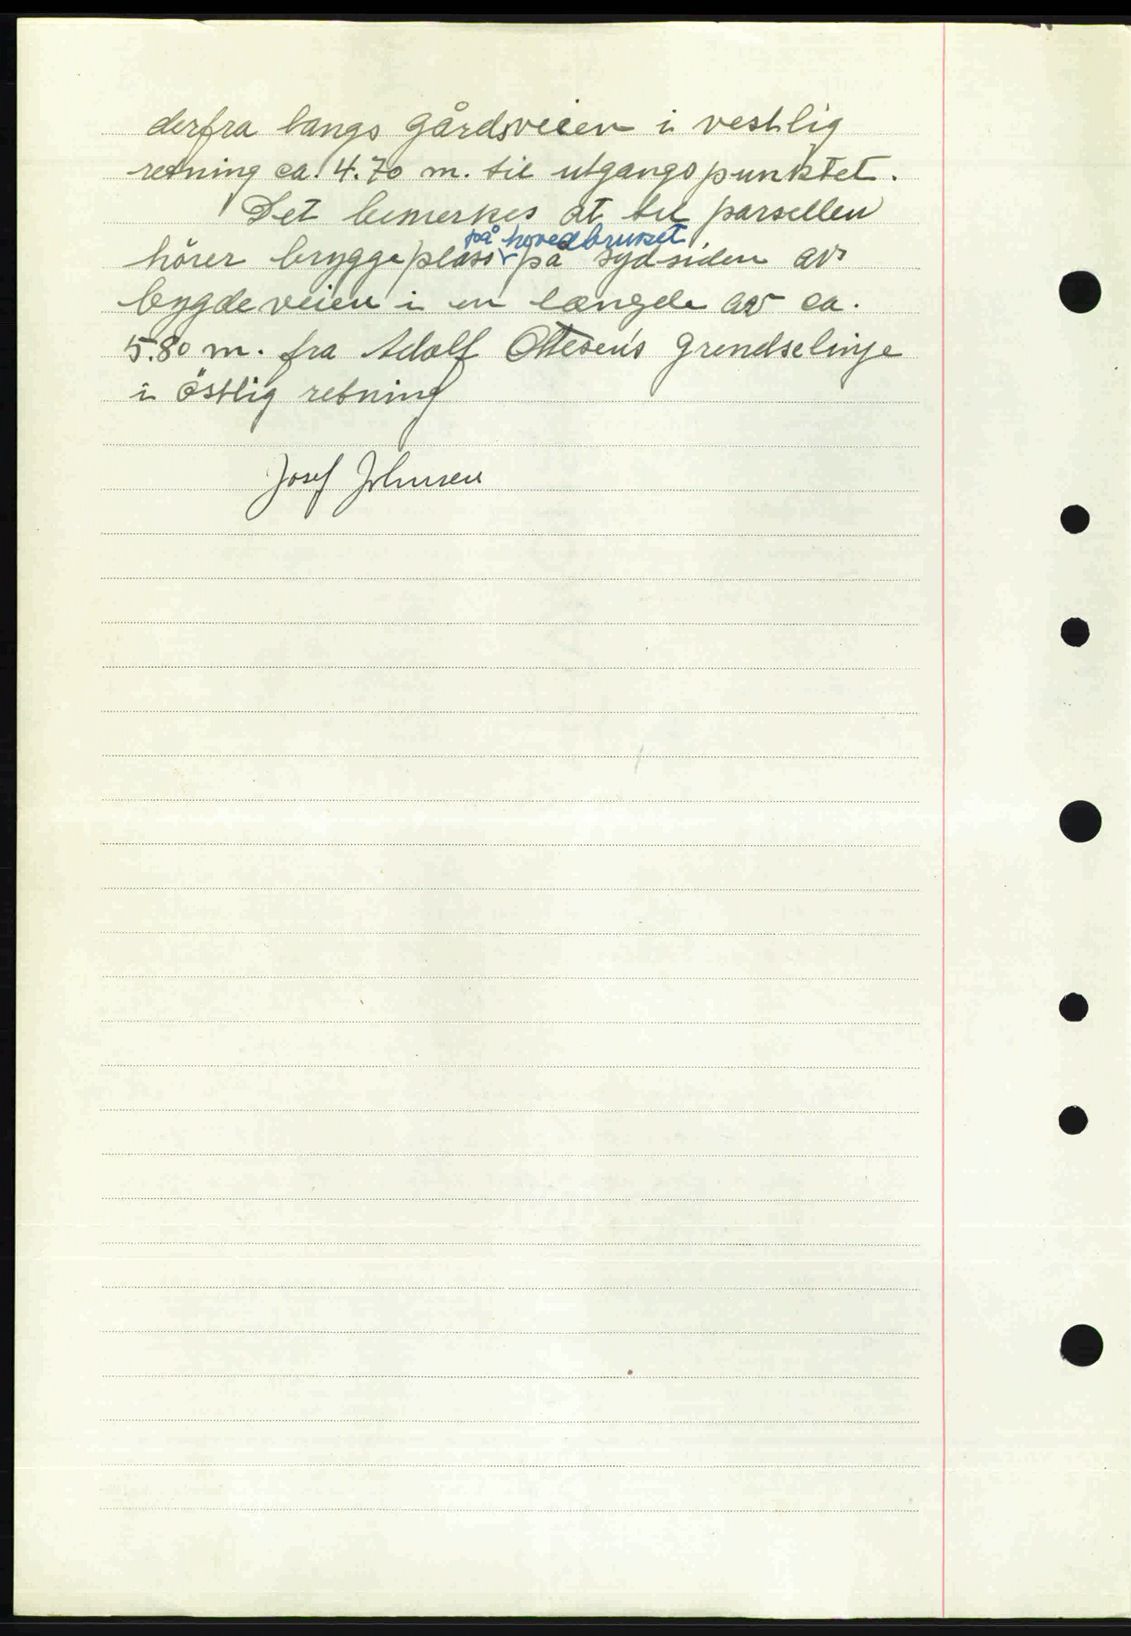 derfra langs gårdsveien i vestlig
retning ca. 4.70 m. til utgangspunktet.
Det bemerkes at til parsellen
på hovedbruket
hörer bryggeplass på sydsiden av
bygdeveien i en længde av ca.
5.80 m. fra Adolf Ottesen's grendselinje
i östlig retning
Josef Johnsen